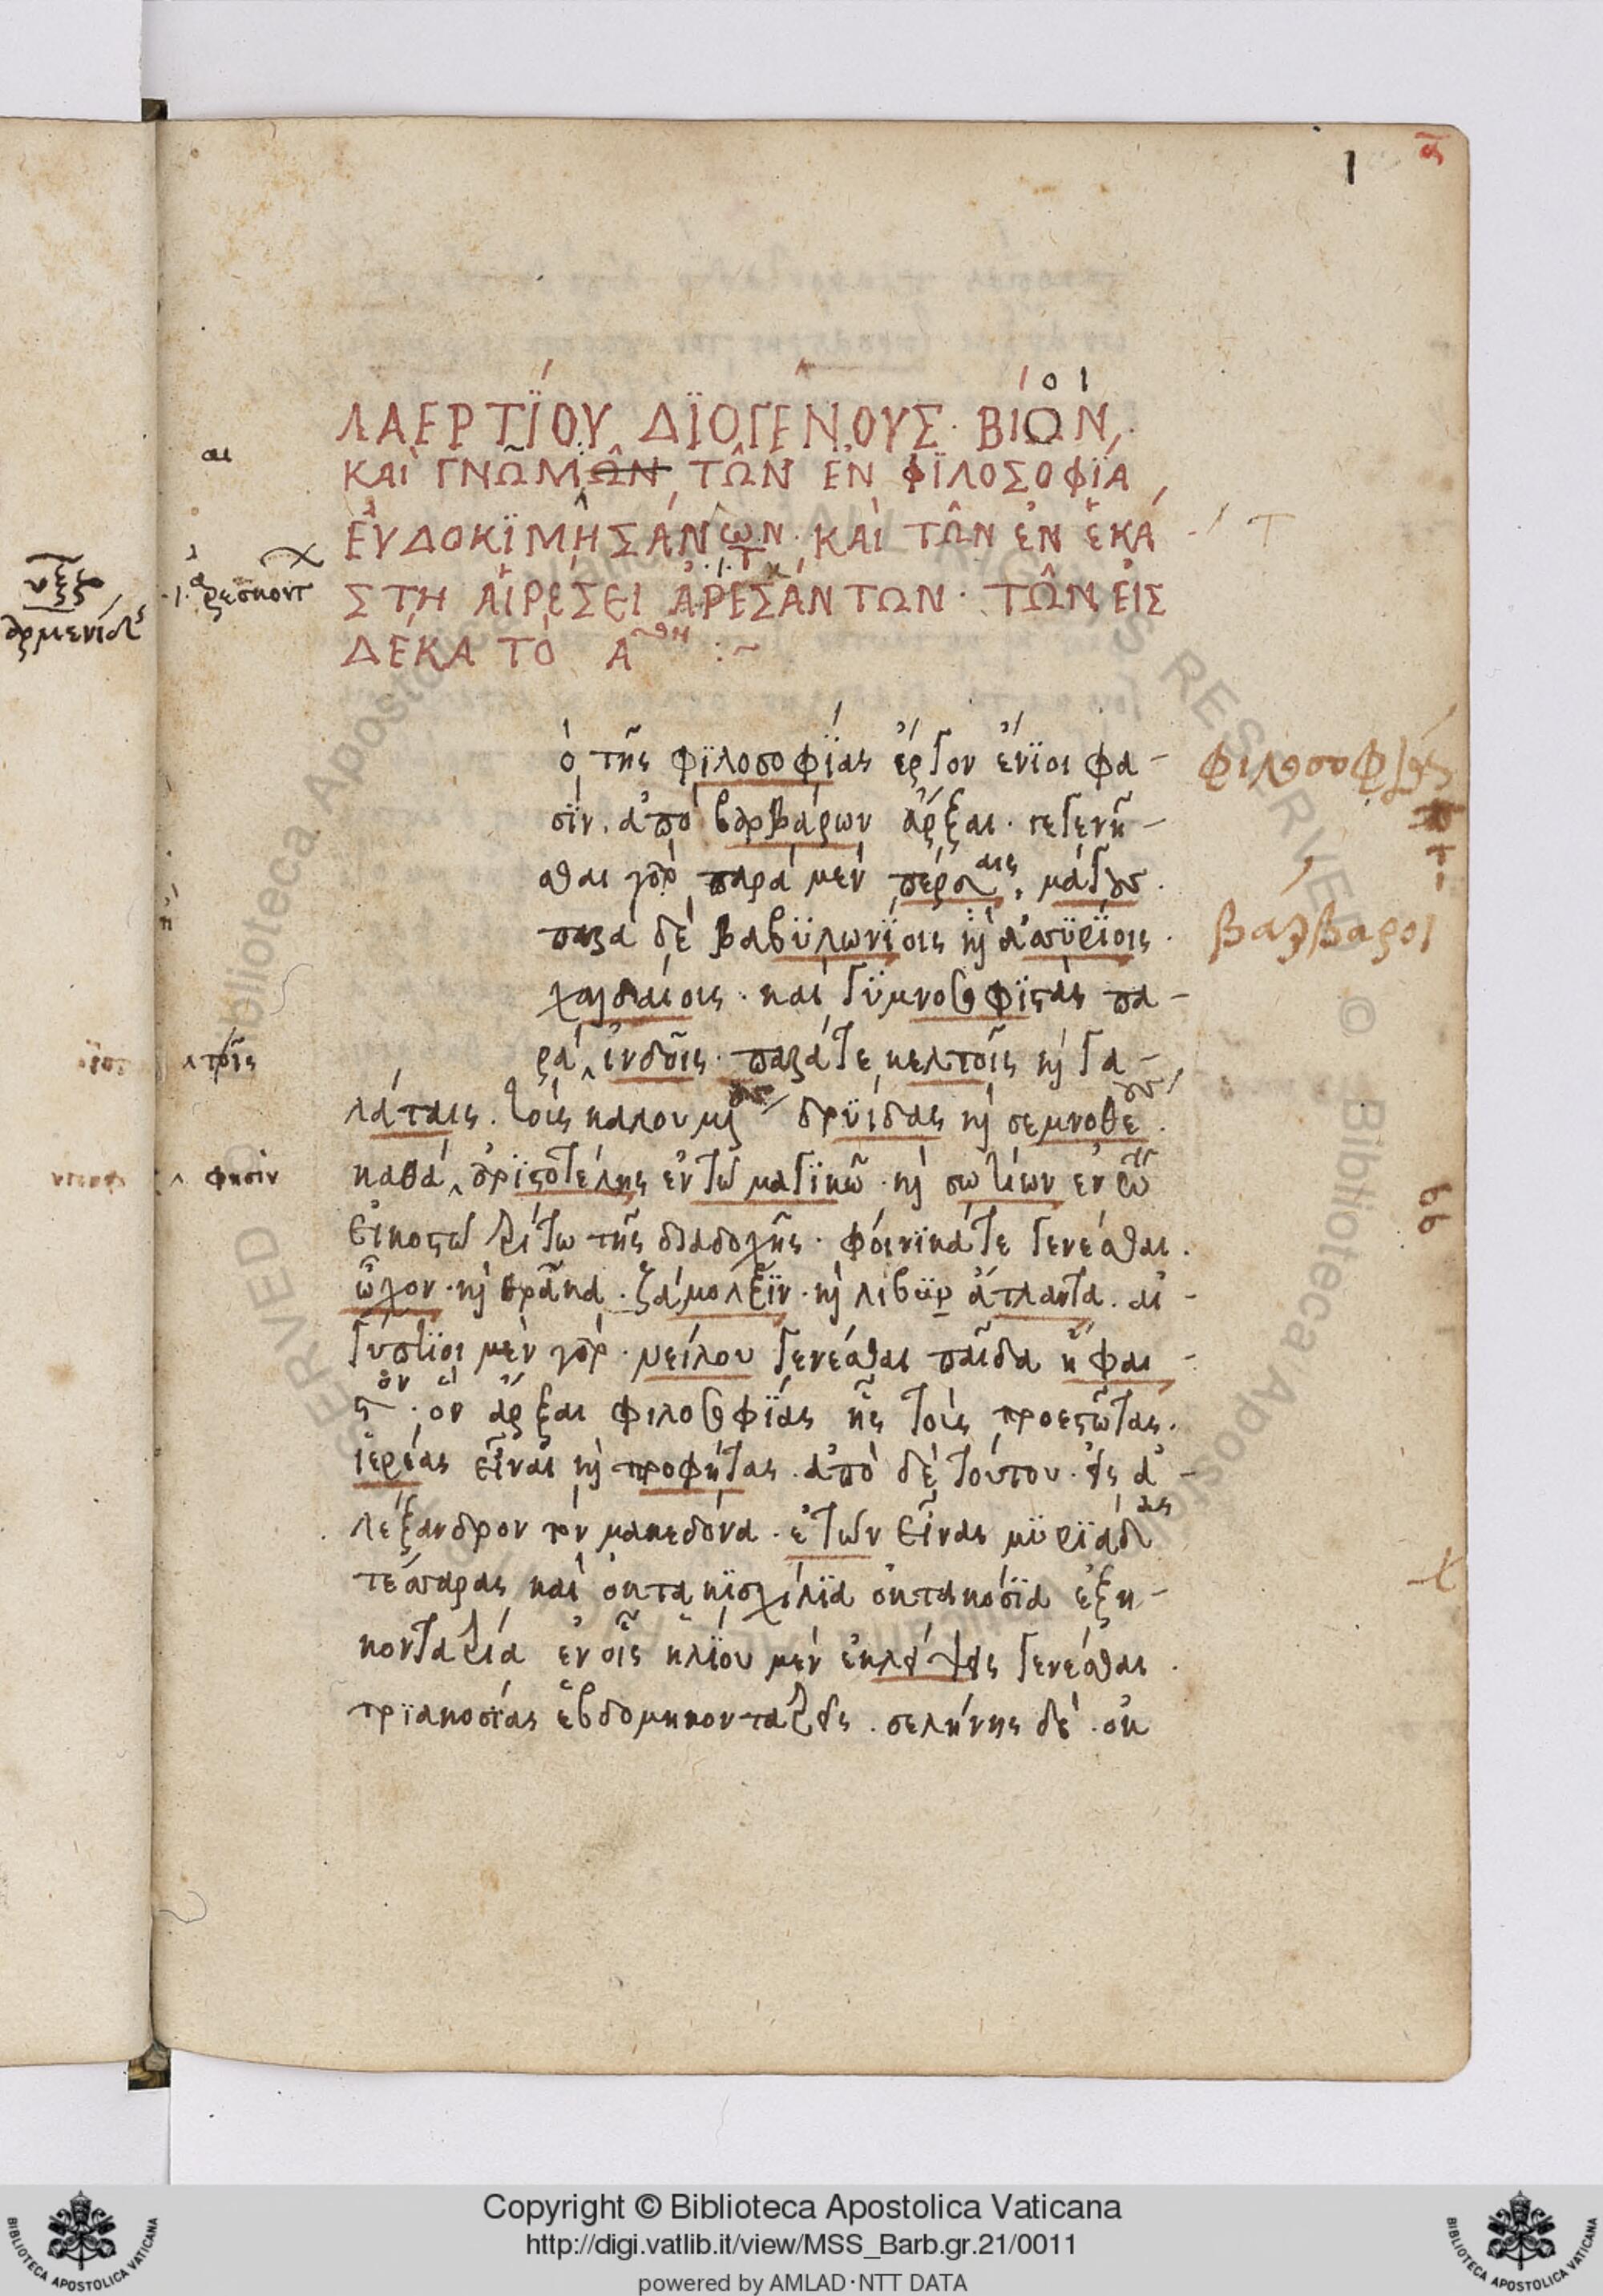 1
ΛΑΕΡΤΪ́ΟΥ ΔΪΟΓΕΝΟΥΣ· ΒΙΩΝ
ΚΑῚ ΓΝΩΜΩ͂Ν, ΤΩ͂Ν ἘΝ ΦΪΛΟΣΟΦΪ́Α,
ΕΥΔΟΚΪΜΗΣΆΝΤΩΝ· ΚΑῚ ΤΩ͂Ν ἘΝ ἙΚΆ
ΣΤΗ ΑἹΡΈΣΕΙ ἈΡΕΣΆΝΤΩΝ· ΤΩ͂Ν ΕἸΣ
ΔΈΚΑ ΤῸ Α :~
αι
ἀρεσκοντ
Τ
ὸ τῆς φϊλοσοφΐας ἔργον ἔνϊοι φα-
σΐν. ἀπὸ βαρβάρων ἄρξαι. γεγενῆ-
σθαι γὰρ παρὰ μὲν πέρσαις, μάγους.
παρὰ δὲ βαβϋλωνΐοις κὶ ἀσσϋρΐοις.
χαλδαίους. καὶ γϋμνοσοφϊστὰς πα-
ρὰ ἰνδοῖς. παρά τε κελτοῖς κὶ γα-
λάταις. τοὺς καλουμένους δρϋίδας κὶ σεμνοθέους.
καθά ἀριστοτέλης ἐν τῶ μαγϊκῶ. κὶ σωτίων ἐν τῶ
εἰκοστῶ τρίτω τῆς διαδοχῆς. φοίνϊκά τε γενέσθαι.
ὦχον. κὶ θρᾶκα. ζάμολξϊν. κὶ λίβϋν ἄτλαντα. αἰ-
γύπτϊοι μὲν γὰρ. νείλου γενέσθαι παῖδα ἥφαι-
στον. ὃν ἄρξαι φιλοσοφΐας ἧς τοὺς προεστῶτας.
ἱερέας εἶναι κὶ προφήτας. ἀπὸ δὲ τούτου. εἰς ἀ-
λέξανδρον τὸν μακεδόνα. ἐτῶν εἶναι μϋρϊάδας
τέσσαρας καὶ ὀκτακϊσχίλϊα ὀκτακόσϊα ἑξη-
κοντατρία ἐν οἷς ἡλΐου μὲν ἐκλείψεις γενέσθαι.
τρϊακοσΐας ἑβδομηκοντατρεῖς. σελήνης δὲ. ὀκ
τοῖς
φησὶν
φιλοσοφίας
βάρβαροι
Copyright © Biblioteca Apostolica Vaticana
http://digi.vatlib.it/view/MSS_Barb.gr.21/0011
powered by AMLAD·NTT DATA
BIBLIOTECA APOSTOLICA VATICANA
BIBLIOTECA APOSTOLICA VATICANA